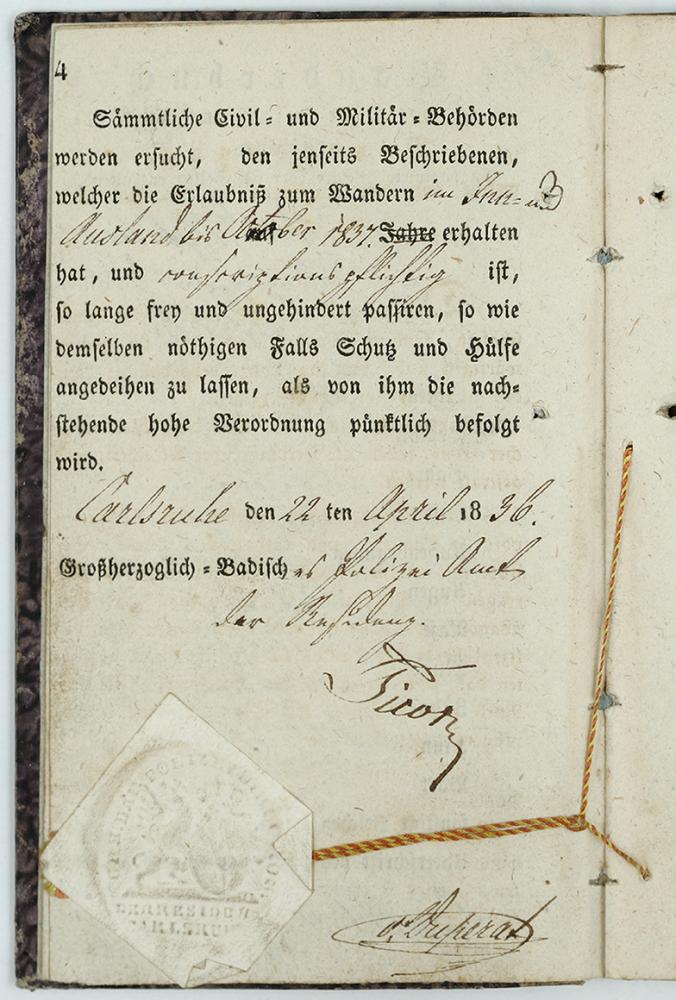 4
Sämmtliche Civil- und Militär-Behörden
werden ersucht, den jenseits Beschriebenen,
welcher die Erlaubniß zum Wandern im Inn- und
Ausland bis October 1837. Jahre erhalten
hat, und conscriptionspflichtig ist,
so lange frey und ungehindert passiren, so wie
demselben nöthigen Falls Schutz und Hülfe
angedeihen zu lassen, als von ihm die nach-
stehende hohe Verordnung pünktlich befolgt
wird.
Carlsruhe den 22 ten April 1836.
Großherzoglich-Badisches Polizei Amt
der Residenz.